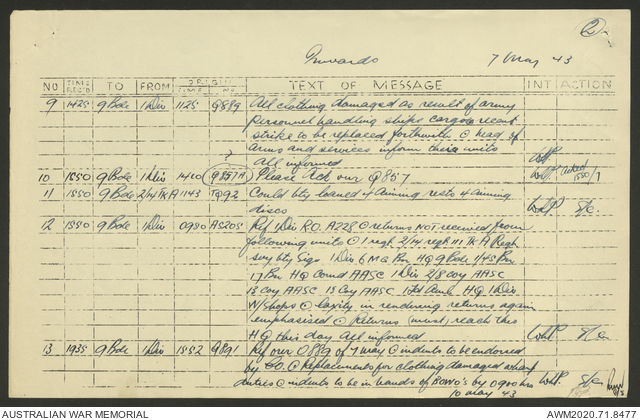 2
Inwards 7 May 43
NO TIME REC'D TO FROM ORIGIN TIME NO TEXT OF MESSAGE INT ACTION
9 1425 9 Bde 1 Div 1125 Q889 All clothing damaged as result of army
personnel handling ships cargoes recent
strike to be replaced forthwith @ head of
arms and services inform their units
All informed
10 1550 9 Bde 1 Div 1420 Q857A Please Ack our Q857
11 1550 9 Bde 2/14 Tk A 1143 TQ92 Could bty loaned 4 aiming rests 4 aiming
discs
12 1550 9 Bde 1 Div 0930 A5205 Ref 1 Div R.O. A228 @ returns NOT received from
following units @ 1 regt 2/14 regt 111 TK A Regt
svy bty Sigs 1 Div 6 MG Bn HQ 9 Bde 1/45 Bn
17 Bn HQ Comd AASC 1 Div 2/8 coy AASC
13 Coy AASC 15 Coy AASC 1 Fd Amb HQ 1 Div
W/shops @ laxity in rendering returns again
emphasised @ Returns (must) reach this
HQ this day All informed
13 1935 9 Bde 1 Div 1552 Q891 Ref our Q889 of 7 May @ indents to be endorsed
by CO. @ Replacements for clothing damaged wharf
duties @ indents to be in hands of BOWO's by 0900 hrs
10 May 43
AUSTRALIAN WAR MEMORIAL AWM2020.71.8477